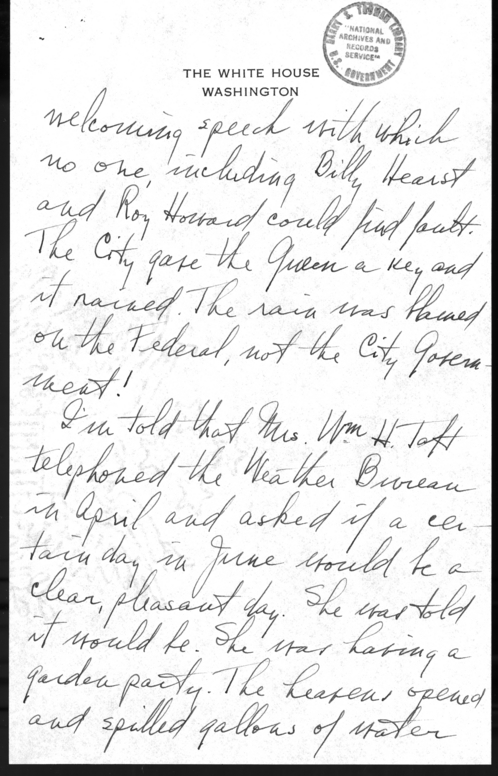 HARRY S. TRUMAN LIBRARY
"NATIONAL
ARCHIVES AND
RECORDS
SERVICE"
U.S. GOVERNMENT
THE WHITE HOUSE
WASHINGTON
welcoming speech with which
no one, including Billy Hearst
and Roy Howard could find fault.
The City gave the Queen a key and
it rained. The rain was blamed
on the Federal, not the City Govern-
ment!
I'm told that Mrs. Wm H. Taft
telephoned the Weather Bureau
in April and asked if a cer-
tain day in June would be a
clear, pleasant day. She was told
it would be. She was having a
garden party. The heavens opened
and spilled gallons of water